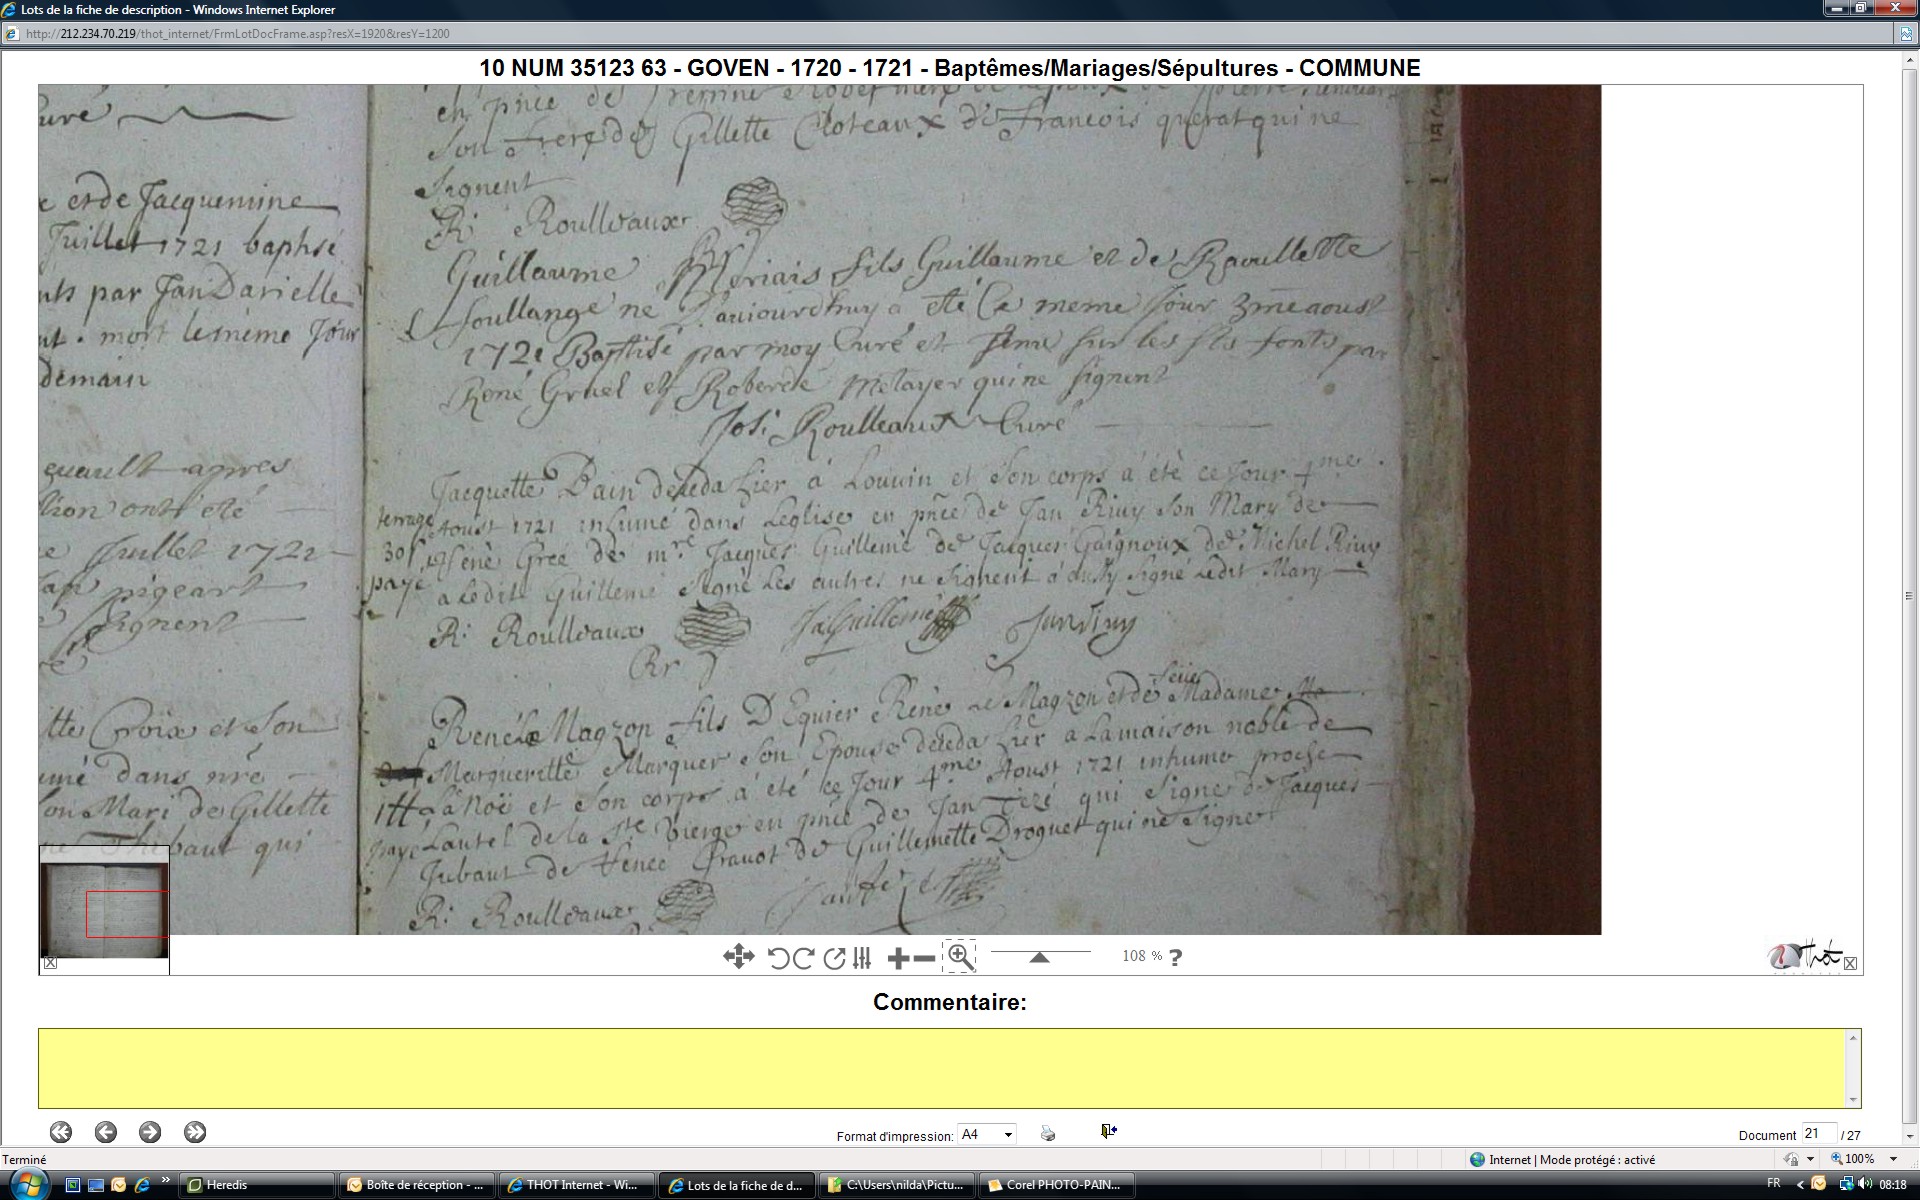 Lots de la fiche de description - Windows Internet Explorer
http://212.234.70.219/thot_internet/FrmLotDocFrame.asp?resX=1920&resY=1200
10 NUM 35123 63 - GOVEN - 1720 - 1721 - Baptêmes/Mariages/Sépultures - COMMUNE
curé
e et de Jacquemine
Juillet 1721 baptisé
par Jan Darielle
mort le meme Jour
demain
après
ont été
Juillet 1721
pigeart
signent
Croix et son
dans nre
son Mari de Gillette
Thebaut qui
en pnce de
son frere de Gillette Cloteaux de Francois querat qui ne
signent
R: Roulleaux
Guillaume fils Guillaume et de Raoullette
soullange né d'aujourdhuy a été le meme jour 3me aoust
1721 Baptisé par moy Curé et sur les fts fonts par
René Gruel et Roberde Metayer qui ne signent
Jos: Roulleaux Curé
Jacquette Dain deceda hier a Louvin et son corps a été ce Jour 4me
Aoust 1721 inhumé dans Leglise en pnce de Jan Rivy son Mary de
René Greé de mre Jacques Guillemé de Jacques Gaignoux de Michel Rivy
a Ledit Guillemé signé Les autres ne signent a aussy signé Ledit Mary
terrage
30s
paye
R: Roulleaux
Rr
JaGuillemé
Jan Rivy
René Le Magzon fils D Equier René Le Magzon et de feüe Madame
Margueritte Marquer son Epouse deceda hier a La maison noble de
La Noë et son corps a été ce Jour 4me Aoust 1721 inhumé proche
Lautel de la Ste Vierge en pnce de Jan Tezé qui signe de Jacques
Jubaut de Renee Pravot de Guillemette Droguet qui ne signe
paye
R: Roulleaux
108 % ?
Thot
Commentaire:
Format d'impression: A4
Document 21 / 27
Terminé
Internet | Mode protégé : activé
100%
Heredis
Boîte de réception - ...
THOT Internet - Wi...
Lots de la fiche de d...
C:\Users\nilda\Pictu...
Corel PHOTO-PAIN...
FR
08:18